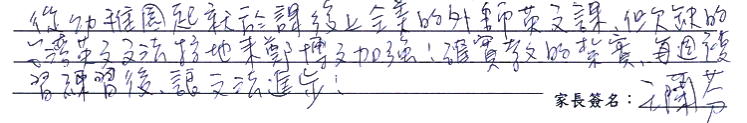 從幼稚園起就於課後上全美的外師英文課,但欠缺的
台灣英文文法特地來鄭博文加強!確實教的紮實,每週複
習練習後,讓文法進步!
家長簽名:王蘭芬